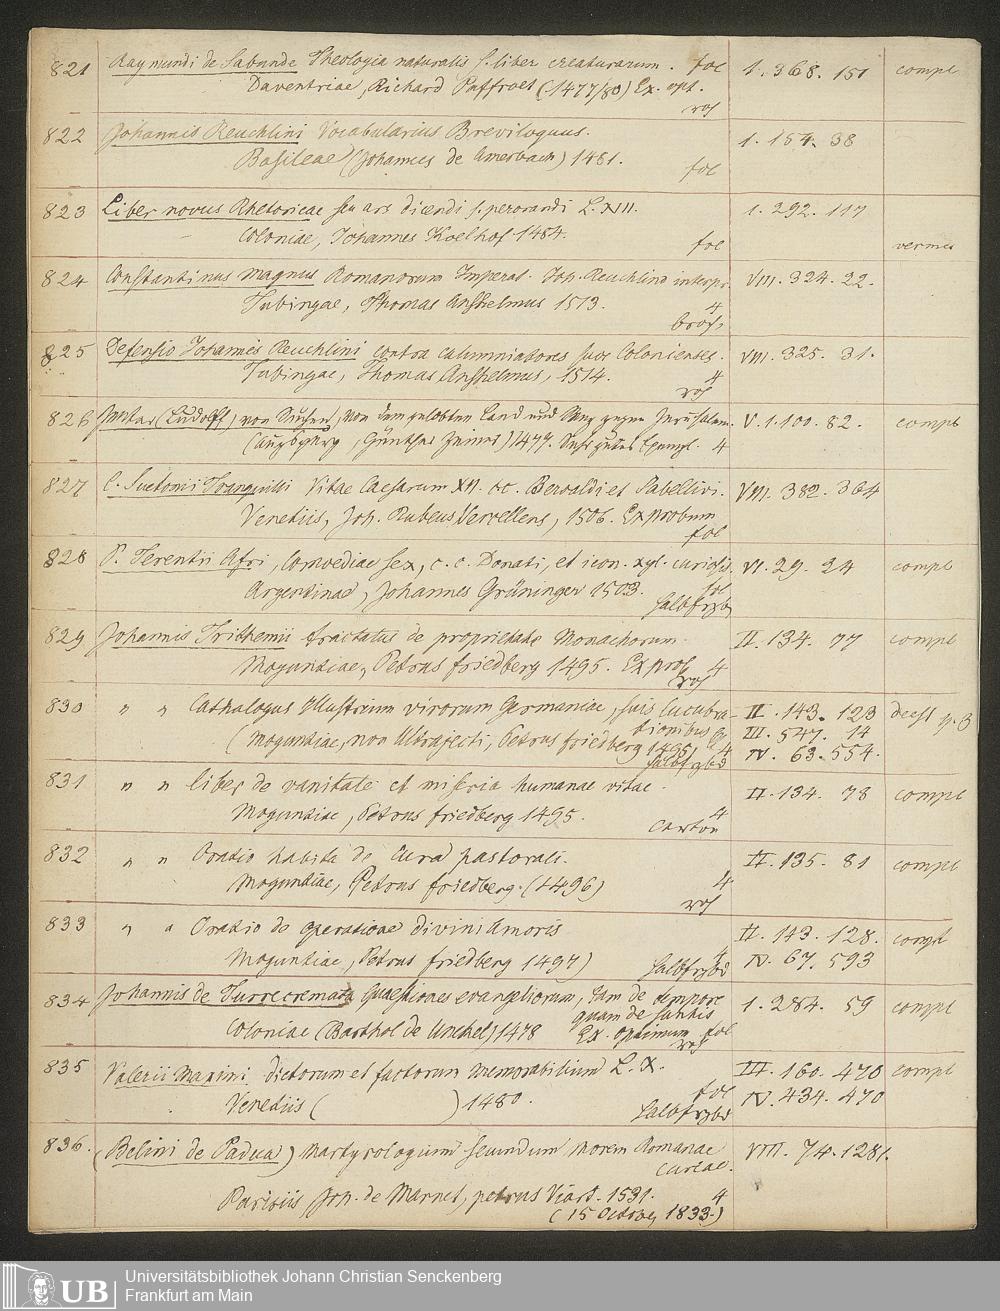 821 Raymundi de Sabunde Theologia naturalis s. liber creaturarum. fol 1. 368. 151 compl
Daventriae, Richard Paffroet (1477/80) Ex. opt.
822 Johannis Reuchlini Vocabularius Breviloquus. 1. 154. 38
Basileae (Johannes de Amerbach) 1481. fol
823 Liber novus Rhetoricae seu ars dicendi s. perorandi L. XIII. 1. 292. 117
Coloniae, Johannes Koelhof 1484. fol
824 Constantinus Magnus Romanorum Imperat. Joh. Reuchlino interpr. VIII. 324. 22.
Tubingae, Thomas Anshelmus 1513. 4
825 Defensio Johannis Reuchlini contra calumniatores suos Colonienses. VIII. 325. 31.
Tubingae, Thomas Anshelmus, 1514. 4
826 (Ludolff) von von dem gelobten Land und Weg gegen Jerusalem. V. 1. 100. 82. compl
(Augsburg, Günther Zainer) 1477. Sehr gutes Exempl. 4
827 C. Suetonii Tranquilli Vitae Caesarum XII. cc. Beroaldi et Sabellici. VIII. 382. 364
Venetiis, Joh. Rubeus Vercellens, 1506. Ex probum
fol
828 P. Terentii Afri, Comoediae sex, c. c. Donati, et icon. xyl. curiosis. VI. 29. 24 compl
Argentinae, Johannes Grüninger 1503. fol
Halbfrzb
829 Johannis Trithemii tractatus de proprietate Monachorum. II. 134. 77 compl
Moguntiae, Petrus friedberg 1495. Ex prob 4
830 " " Cathalogus Illustrium virorum Germaniae, suis lucubra- II. 143. 123 deest p. 3
tionibus III. 547. 14
(Moguntiae, non Ultrajecti, Petrus friedberg 1495) 4 IV. 63. 554.
Halbfrzbd
831 " " liber de vanitate et miseria humanae vitae. II. 134. 78 compl
Moguntiae, Petrus friedberg 1495. 4
Carton
832 " " Oratio habita de Cura pastorali. II. 135. 81 compl
Moguntiae, Petrus friedberg. (1496) 4
833 " " Oratio de operatione divini Amoris II. 143. 128. compl
Moguntiae, Petrus friedberg 1497) 4 IV. 67. 593
Halbfrzbd
834 Johannis de Turrecremata Quaestiones evangeliorum, tam de tempore 1. 284. 59 compl
quam de Sanctis
Coloniae (Barthol de Unckel) 1478 Ex. optimum fol
835 Valerii Maximi dictorum et factorum memorabilium L. IX. III. 160. 470 compl
Venetiis ( ) 1480. fol IV. 434. 470
Halbfrzbd
836. (Belini de Padua) Martyrologium secundum morem Romanae VIII. 74. 1281.
curiae.
Parisiis, Joh. de Marnef, petrus Viart. 1531. 4
(15 October 1833.)
UB
Universitätsbibliothek Johann Christian Senckenberg
Frankfurt am Main